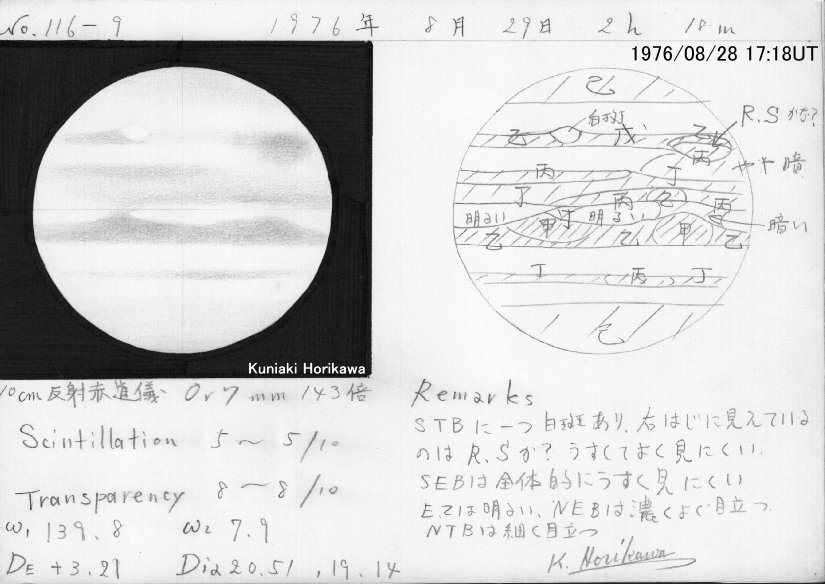 No. 116-9 1976年 8月 29日 2h 18m
1976/08/28 17:18UT
乙
白斑
R.Sかな?
乙 戊 乙
丙
丙 丁 やや暗
丁 丙 乙 丙
明るい 甲 丁 明るい 甲 暗い
乙 乙 乙
丁 丙 丁
乙
Kuniaki Horikawa
10cm反射赤道儀 Or7mm 143倍
Scintillation 5~5/10
Transparency 8~8/10
ω1 139.8 ω2 7.9
DE +3.21 Dia 20.51, 19.14
Remarks
STBに一つ白斑あり、右はじに見えている
のはR.Sか?うすくてよく見にくい.
SEBは全体的にうすく見にくい
EZは明るい、NEBは濃くよく目立つ.
NTBは細く目立つ
K. Horikawa